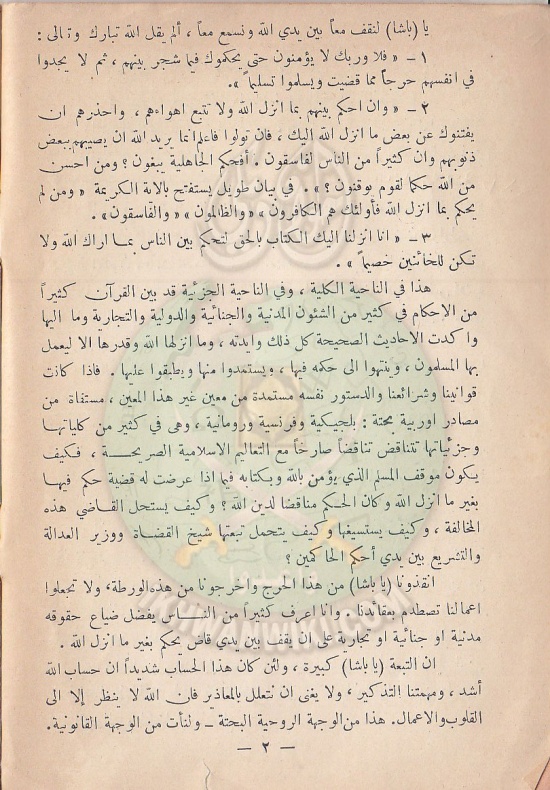 يا (باشا) لنقف معاً بين يدي الله ونسمع معاً ، ألم يقل الله تبارك وتعالى :
١ – « فلا وربك لا يؤمنون حتى يحكموك فيما شجر بينهم ، ثم لا يجدوا
في انفسهم حرجاً مما قضيت ويسلموا تسليماً ».
٢ – « وان احكم بينهم بما انزل الله ولا تتبع اهواءهم ، واحذرهم ان
يفتنوك عن بعض ما انزل الله اليك ، فان تولوا فاعلم انما يريد الله ان يصيبهم ببعض
ذنوبهم وان كثيراً من الناس لفاسقون . أفحكم الجاهلية يبغون ؟ ومن احسن
من الله حكما لقوم يوقنون ؟ » . في بيان طويل يستفتح بالآية الكريمة « ومن لم
يحكم بما انزل الله فأولئك هم الكافرون » « والظالمون » « والفاسقون ».
٣ – « انا انزلنا اليك الكتاب بالحق لتحكم بين الناس بما اراك الله ولا
تكن للخائنين خصيماً » .
هذا في الناحية الكلية ، وفي الناحية الجزئية قد بين القرآن كثيراً
من الاحكام في كثير من الشئون المدنية والجنائية والدولية والتجارية وما اليها
واكدت الاحاديث الصحيحة كل ذلك وايدته ، وما انزلها الله وقدرها الا ليعمل
بها المسلمون ، وينتهوا الى حكمه فيها ، ويستمدوا منها ويطبقوا عليها . فاذا كانت
قوانيننا وشرائعنا والدستور نفسه مستمدة من معين غير هذا المعين ، مستقاة من
مصادر اوربية بحتة : بلجيكية وفرنسية ورومانية ، وهى في كثير من كلياتها
وجزئياتها تتناقض تناقضاً صارخاً مع التعاليم الاسلامية الصريحة ، فكيف
يكون موقف المسلم الذي يؤمن بالله وبكتابه فيما اذا عرضت له قضية حكم فيها
بغير ما انزل الله وكان الحكم مناقضا لدين الله ؟ وكيف يستحل القاضي هذه
المخالفة ، وكيف يستسيغها وكيف يتحمل تبعتها شيخ القضاة ووزير العدالة
والتشريع بين يدي أحكم الحاكمين ؟
انقذونا (ياباشا) من هذا الحرج واخرجونا من هذه الورطة، ولا تجعلوا
اعمالنا تصطدم بعقائدنا . وانا اعرف كثيراً من الناس يفضل ضياع حقوقه
مدنية او جنائية او تجارية على ان يقف بين يدي قاض يحكم بغير ما انزل الله .
ان التبعة (ياباشا) كبيرة ، ولئن كان هذا الحساب شديداً ان حساب الله
أشد ، ومهمتنا التذكير ، ولا يغنى ان نتعلل بالمعاذير فان الله لا ينظر إلا الى
القلوب والاعمال. هذا من الوجهة الروحية البحتة – ولنأت من الوجهة القانونية.
– ٢ –